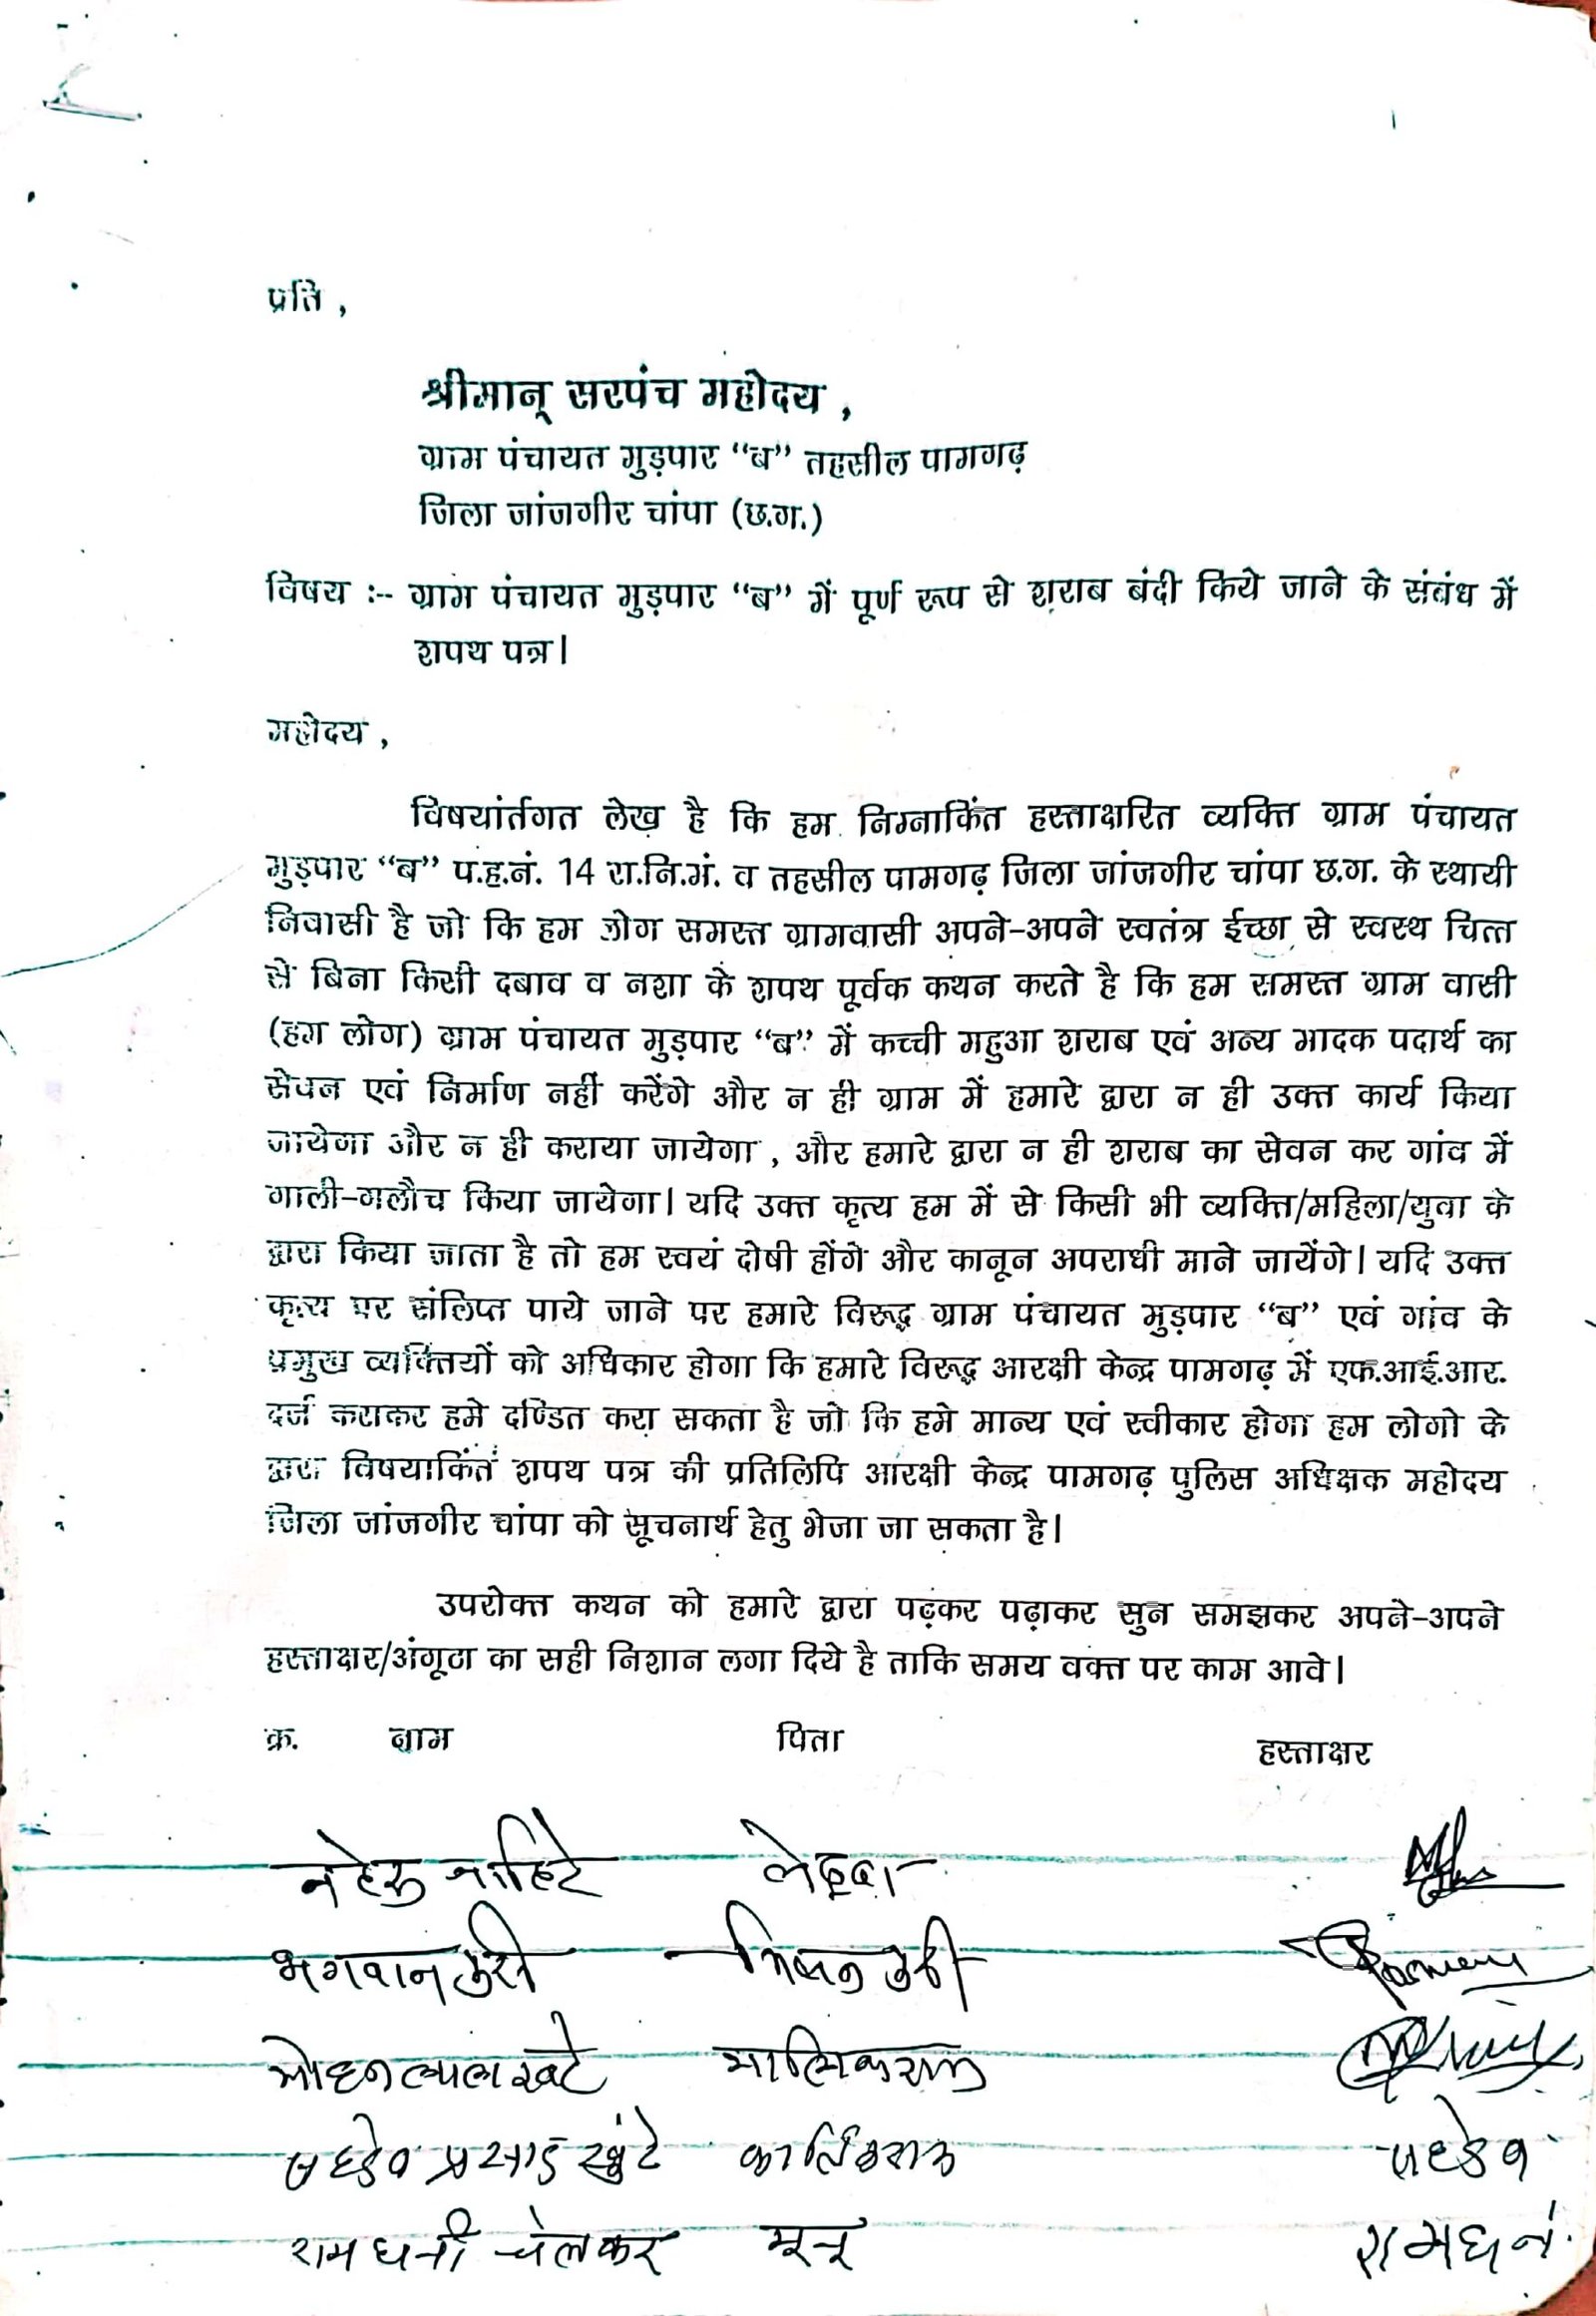 प्रति ,
श्रीमान् सरपंच महोदय ,
ग्राम पंचायत मुड़पार “ब” तहसील पामगढ़
जिला जांजगीर चांपा (छ.ग.)
विषय :-- ग्राम पंचायत मुड़पार “ब” में पूर्ण रूप से शराब बंदी किये जाने के संबंध में
शपथ पत्र।
महोदय ,
विषयांर्तगत लेख है कि हम निम्नाकिंत हस्ताक्षरित व्यक्ति ग्राम पंचायत
मुड़पार “ब” प.ह.नं. 14 रा.नि.मं. व तहसील पामगढ़ जिला जांजगीर चांपा छ.ग. के स्थायी
निवासी है जो कि हम लोग समस्त ग्रामवासी अपने-अपने स्वतंत्र ईच्छा से स्वस्थ चित्त
से बिना किसी दबाव व नशा के शपथ पूर्वक कथन करते है कि हम समस्त ग्राम वासी
(हम लोग) ग्राम पंचायत मुड़पार “ब” में कच्ची महुआ शराब एवं अन्य मादक पदार्थ का
सेवन एवं निर्माण नहीं करेंगे और न ही ग्राम में हमारे द्वारा न ही उक्त कार्य किया
जायेगा और न ही कराया जायेगा , और हमारे द्वारा न ही शराब का सेवन कर गांव में
गाली-गलौच किया जायेगा। यदि उक्त कृत्य हम में से किसी भी व्यक्ति/महिला/युवा के
द्वारा किया जाता है तो हम स्वयं दोषी होंगे और कानून अपराधी माने जायेंगे। यदि उक्त
कृत्य पर संलिप्त पाये जाने पर हमारे विरूद्ध ग्राम पंचायत मुड़पार “ब” एवं गांव के
प्रमुख व्यक्तियों को अधिकार होगा कि हमारे विरूद्ध आरक्षी केन्द्र पामगढ़ में एफ.आई.आर.
दर्ज कराकर हमे दण्डित करा सकता है जो कि हमे मान्य एवं स्वीकार होगा हम लोगो के
द्वारा विषयाकिंत शपथ पत्र की प्रतिलिपि आरक्षी केन्द्र पामगढ़ पुलिस अधिक्षक महोदय
जिला जांजगीर चांपा को सूचनार्थ हेतु भेजा जा सकता है।
उपरोक्त कथन को हमारे द्वारा पढ़कर पढ़ाकर सुन समझकर अपने-अपने
हस्ताक्षर/अंगूठा का सही निशान लगा दिये है ताकि समय वक्त पर काम आवे।
क्र. नाम पिता हस्ताक्षर
नहेरू लेदवा
भगवान तुरी तुरी
मोहनलाल खुंटे
सहदेव प्रसाद खुंटे कार्तिकराम सहदेव
रामधनी चेलकर रामधनं